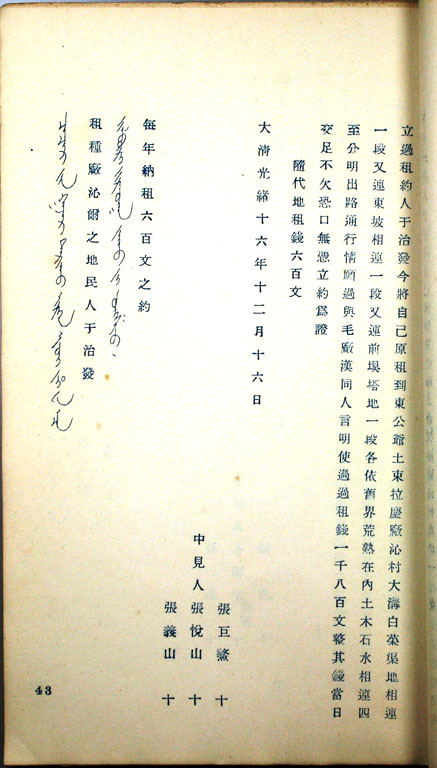 立過租約人于治發今將自己原租到東公爺土東拉慶廠沁村大溝白菜渠地相連
一段又連東坡相連一段又連前堤塔地一段各依舊界荒熟在內土木石水相連四
至分明出路通行情願過與毛廠漢同人言明使過過租錢一千八百文整其錢當日
交足不欠恐口無憑立約爲證
隨代地租錢六百文
大清光緒十六年十二月十六日
張巨鰲 十
中見人 張悅山 十
張義山 十
每年納租六百文之約
租種廠沁爾之地民人于治發
43